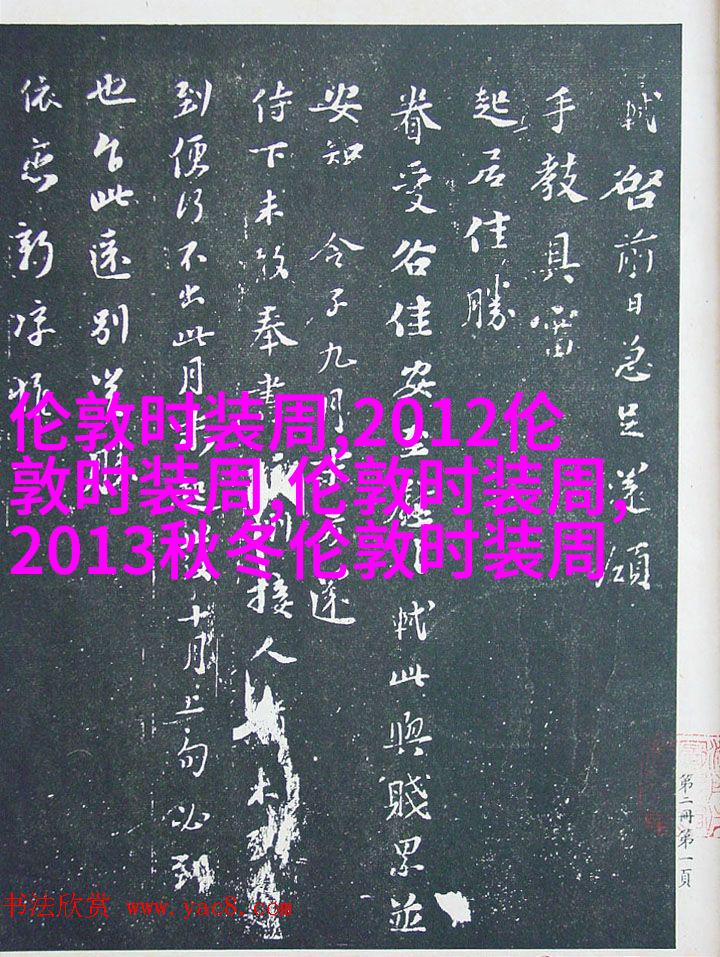 軾啓前日急足還領
手教具審
起居佳勝
眷愛各佳安軾此與賤累並
安知 令子九月
侍下未敢奉書接人
到便行不出此月十月上旬必到
也乍此遠別
依戀新涼
伦敦时装周,2012伦
敦时装周,伦敦时装周,
2013秋冬伦敦时装周
第二冊第一頁
书法欣赏 www.yac8.com